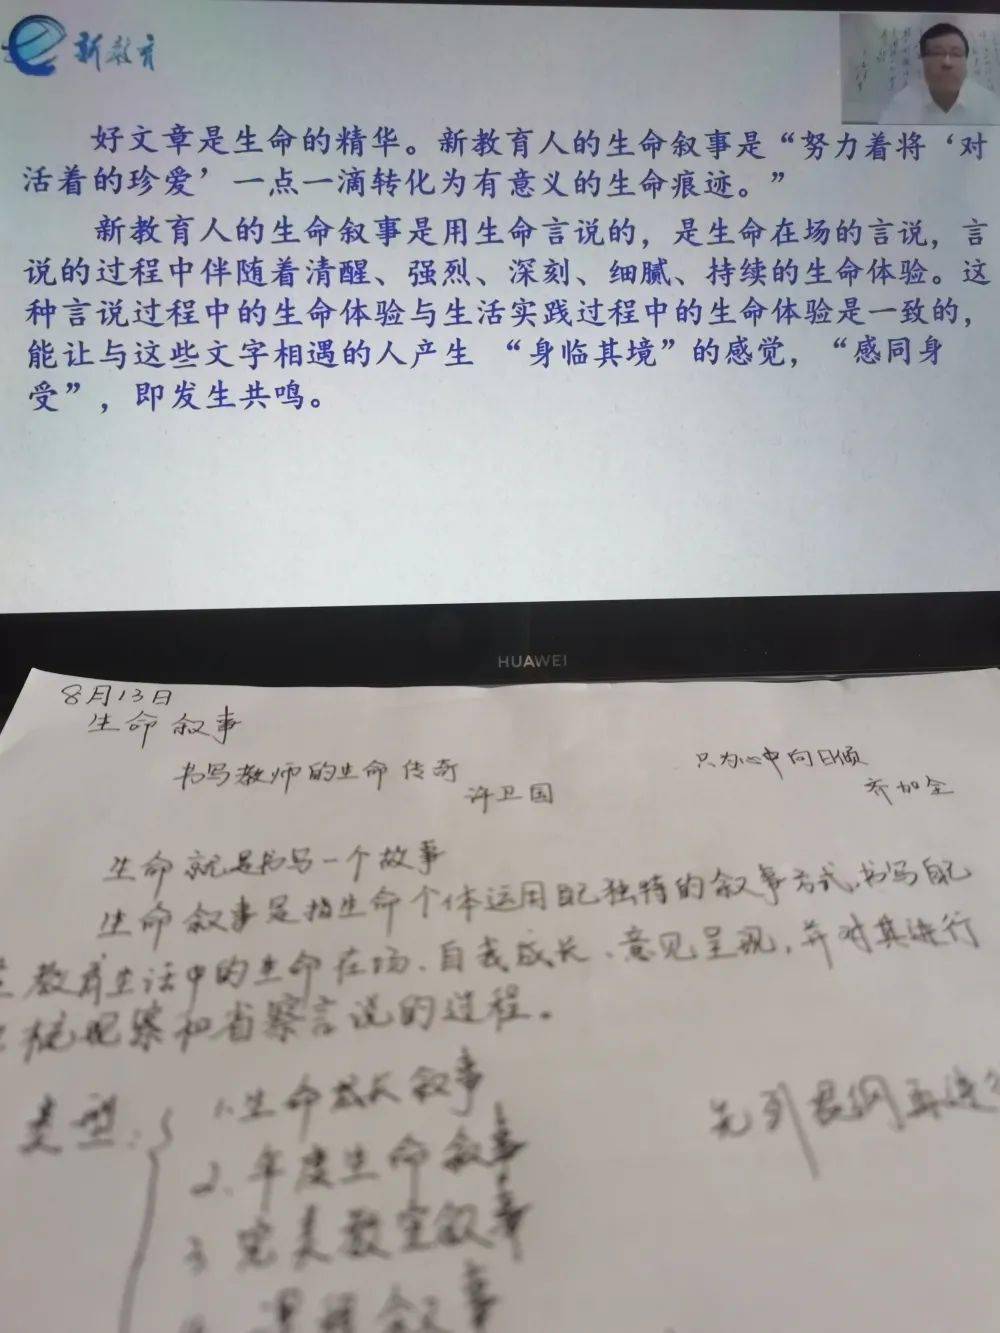 新教育
好文章是生命的精华。新教育人的生命叙事是“努力着将‘对
活着的珍爱’一点一滴转化为有意义的生命痕迹。”
新教育人的生命叙事是用生命言说的，是生命在场的言说，言
说的过程中伴随着清醒、强烈、深刻、细腻、持续的生命体验。这
种言说过程中的生命体验与生活实践过程中的生命体验是一致的，
能让与这些文字相遇的人产生 “身临其境”的感觉，“感同身
受”，即发生共鸣。
HUAWEI
8月13日
生命叙事
书写教师的生命传奇
许卫国
只为心中向日倾
齐加全
生命就是书写一个故事
生命叙事是指生命个体运用自己独特的叙事方式，书写自己
教育生活中的生命在场、自我成长、意见呈现，并对其进行
观察和省察言说的过程。
类型：
1.生命成长叙事
2、年度生命叙事
3 完美教室叙事
课程叙事
先列提纲再